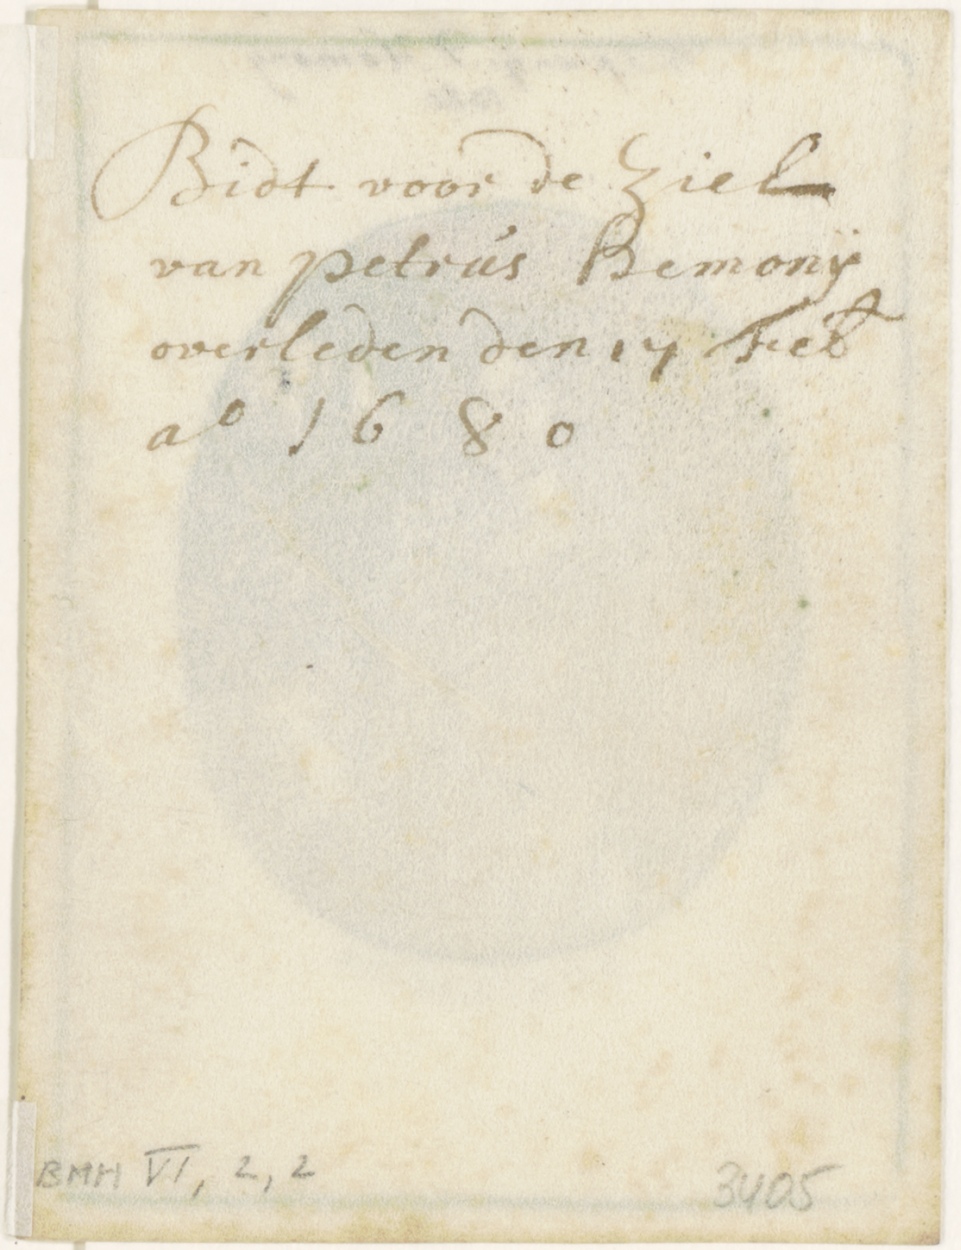 Bidt voor de Ziel
van petrús Hemonÿ
overleden den 17 Feb
aº 1680
BMH VI, 2, 2
3405